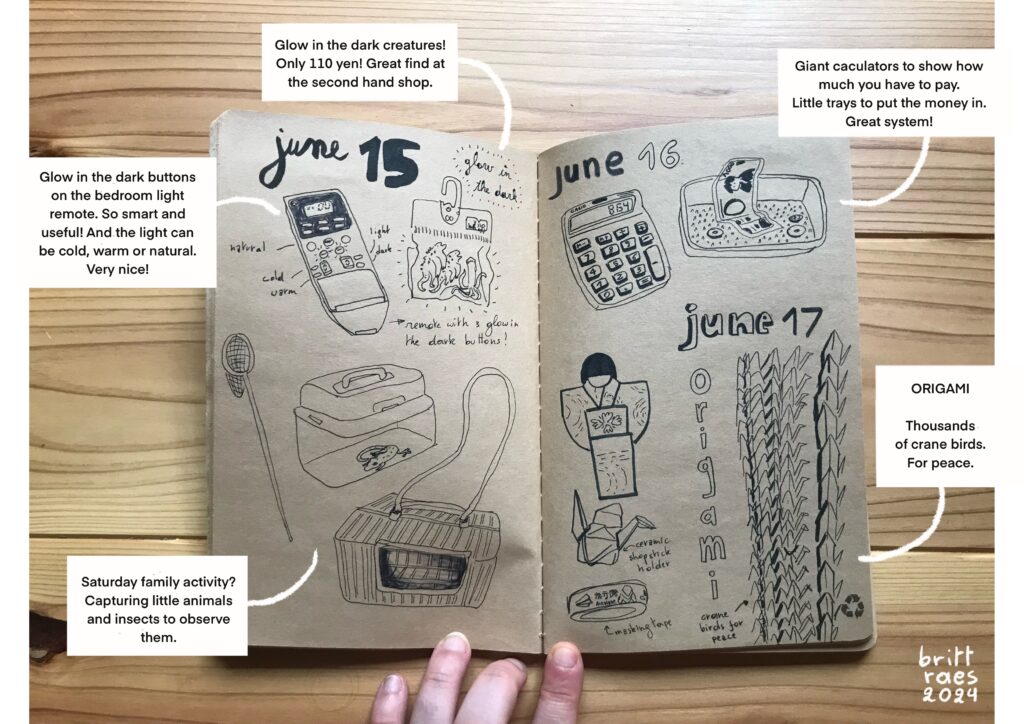 Glow in the dark creatures!
Only 110 yen! Great find at
the second hand shop.
Giant caculators to show how
much you have to pay.
Little trays to put the money in.
Great system!
Glow in the dark buttons
on the bedroom light
remote. So smart and
useful! And the light can
be cold, warm or natural.
Very nice!
june 15
glow in
the dark
natural
light
dark
cold
warm
remote with 3 glow in
the dark buttons!
june 16.
CASIO
864
june 17
Origami
ceramic
shopstick
holder
masking tape
crane
birds for
peace
ORIGAMI
Thousands
of crane birds.
For peace.
Saturday family activity?
Capturing little animals
and insects to observe
them.
britt
raes
2024